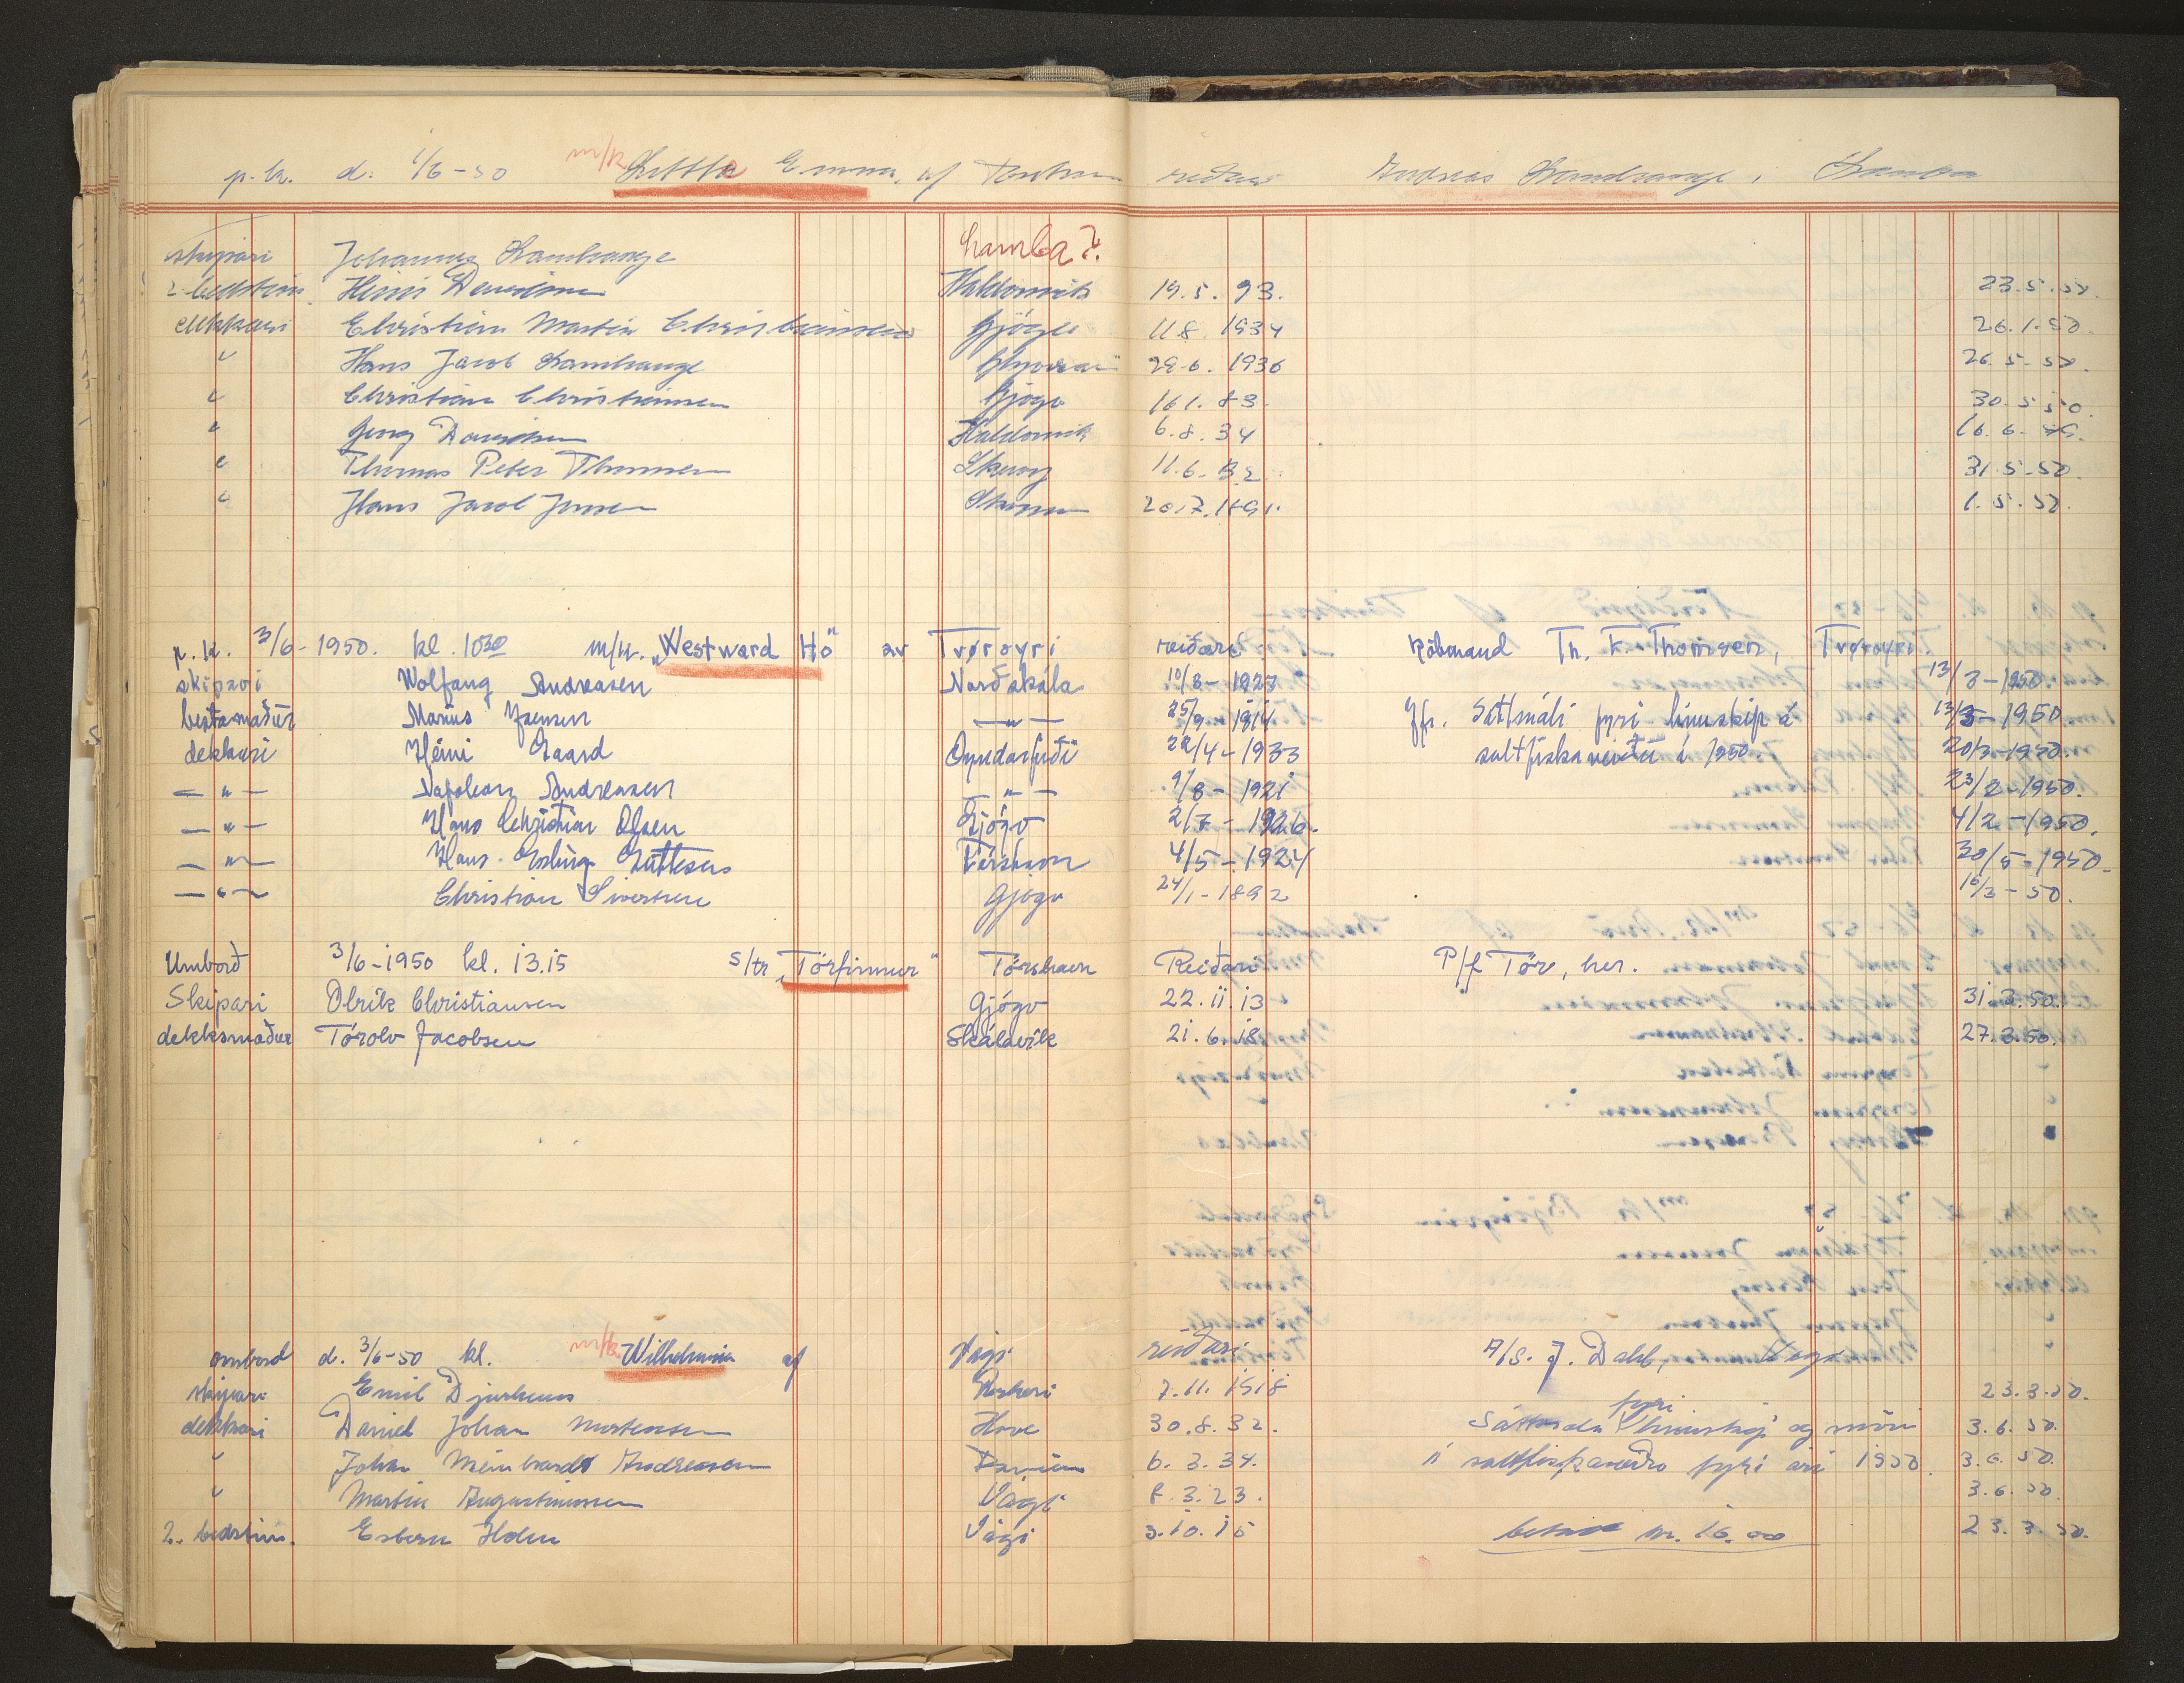 p. k. d. 1/6-50 m/k Littla Emma, af reiðari Andreas Lambhauge, Lamba
Lamba ?.
skipari Johannes Lamhauge
2. bedstim. Heini Danielsen Haldorsvik 19.5. 93. 23.5.50.
dekkari Christian Martin Christiansen Gjógv 11.8. 1934 26.1.50.
" Hans Jacob Lamhauge 29.6. 1936 26.5-50.
" Christian Christiansen Gjógv 16.1. 83. 30.5.50.
" Georg Danielsen Haldorsvik 6.8. 34 16.6-
" Thomas Peter Thomsen Skuvoy 11.6- 31.5-50.
" Hans Jacob Jensen 20.7.1891. 1.5.50.
p. k. 3/6-1950. kl. 1030 m/k. „Westward Hó" av Tvøroyri reiðari Købmand Th. F. Thomsen, Tvøroyri.
skipari Wolfang Andreasen Norðskála 10/8-1923 13/3-1950.
bestamaður Marius Joensen —"— 25/9-1914 Jfr. Sáttmáli fyri línuskip á 13/3-1950.
dekkari Heini Gaard Oyndarfirði 22/4-1933 saltfiskaveiðu í 1950. 20/3-1950.
—"— Napoleon Andreasen —"— 9/8-1921 23/2-1950.
—"— Hans Christian Olsen Gjógv 2/7-1926. 4/2-1950.
—"— Hans Guttesen Tórshavn 4/5-1924 30/5-1950.
—"— Christian Sivertsen Gjógv 24/1-1892 16/3-50.
Umborð 3/6-1950 kl. 13.15 s/tr „Tórfinnur" Tórshavn Reiðari P/f Tór, her.
Skipari Olrik Christiansen Gjógv 22.11.13 31.3.50.
dekksmaður Tórolv Jacobsen Skálavík 21.6.18. 27.3.50.
ombord d. 3/6-50 kl. m/k Wilhelmina af Vági reiðari A/S. J. Dahl, Vági
skipari Emil Djurhuus Porkeri 7.11.1918 23.3.50.
dekkari Daniel Johan Mortensen Hove 30.8.32. Sáttmála fyri línuskip og 3.6.50.
" Johan Meinhardt Andreasen 6.3.34. í saltfiskaveiðu fyri árið 1950 3.6.50.
" Martin Augustinussen Vági 8.3.23. 3.6.50.
2. bedstim. Esbern Holm Vági 3.10.15 betalt kr. 16.00 23.3.50.